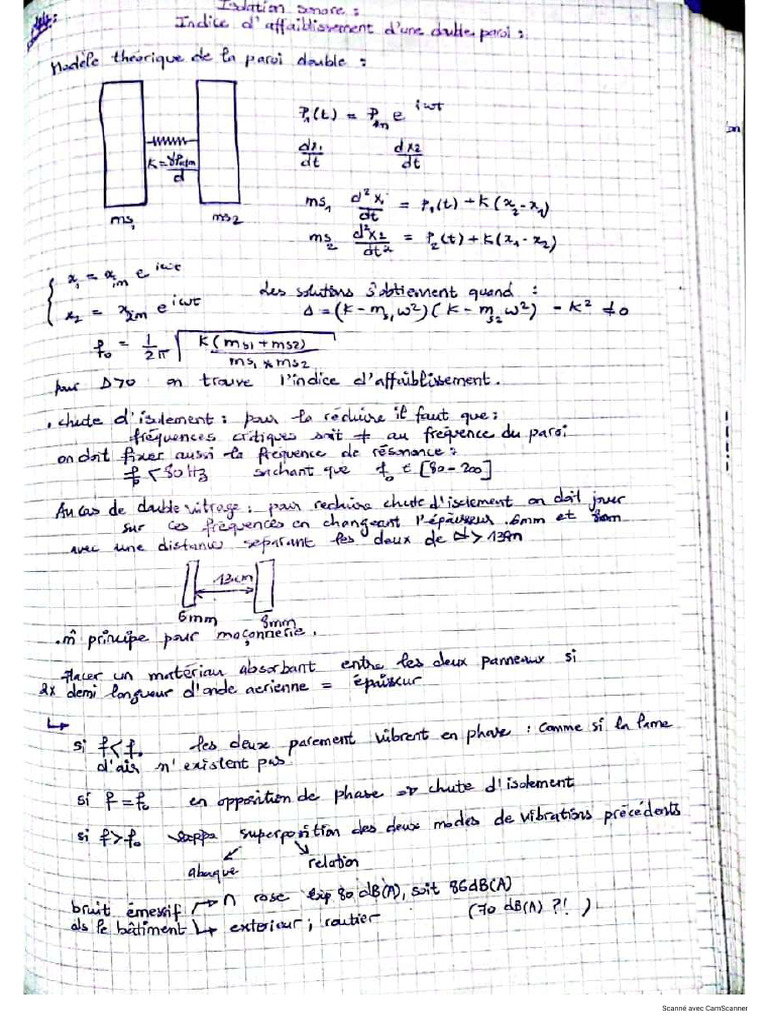 Isolation sonore :
Indice d'affaiblissement d'une double paroi :
Modèle théorique de la paroi double :
P₁(t) = P₁ₘ e^{iωt}
dx₁/dt    dx2/dt
K = γPatm/d
ms₁    ms2
ms₁ d²x₁/dt = P₁(t) + K(x₂ - x₁)
ms₂ d²x2/dt² = P₂(t) + K(x₁ - x₂)
x₁ = x₁ₘ e^{iωt}
x₂ = x₂ₘ e^{iωt}
Les solutions s'obtiennent quand :
Δ = (K - ms₁ω²)(K - ms₂ω²) - K² ≠ 0
f₀ = 1/2π √(K(ms1 + ms2)/(ms1 × ms2))
pour Δ>0 on trouve l'indice d'affaiblissement.
. chute d'isolement : pour la réduire il faut que :
fréquences critiques soit ≠ au fréquence du paroi
on doit fixer aussi la fréquence de résonance :
f₀ < 80Hz sachant que f₀ ∈ [80-200]
Au cas de double vitrage : pour reduire chute d'isolement on doit jouer
sur ces fréquences en changeant l'épaisseur .6mm et 8mm
avec une distance separant les deux de
13cm
6mm    8mm
. m̂ principe pour maçonnerie.
placer un matériau absorbant entre les deux panneaux si
2x demi longueur d'onde aerienne = épaisseur
↳
si f<f₀ les deux parement vibrent en phase : comme si la lame
d'air n'existent pas
si f=f₀ en opposition de phase ⇒ chute d'isolement
si f>f₀ superposition des deux modes de vibrations précédents
abaque    relation
bruit émessif ↱ ∩ rose 80 dB(A), soit 86dB(A)
ds le bâtiment ↳ exterieur ; routier    (70 dB(A) ?! )
Scanné avec CamScanner